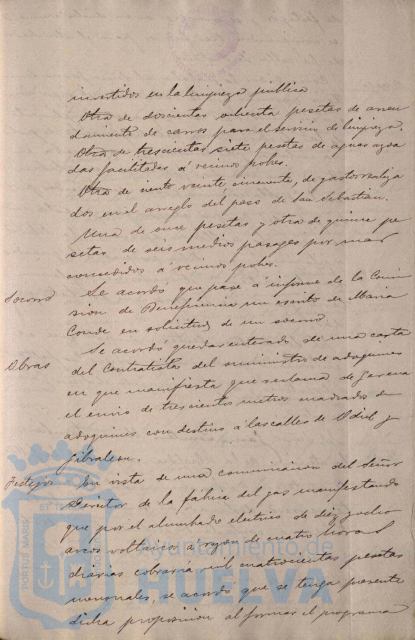 invertidos en la limpieza pública
Otra de doscientas ochenta pesetas de arren
damiento de carros para el servicio de limpieza.
Otra de trescientas siete pesetas de aguas
das facilitadas á vecinos pobres.
Otra de ciento veinte cincuenta, de gastos realiza
dos en el arreglo del pozo de San Sebastian.
Una de once pesetas y otra de quince pe
setas de seis medios pasages por mar
concedidos á vecinos pobres.
Socorro Se acordó que pase á informe de la Comi
sion de Beneficencia un escrito de Maria
Conde en solicitud de un socorro.
Obras Se acordó quedar enterado de una carta
del Contratista del suministro de adoquines
en que manifiesta que reclama de Gerena
el envio de trescientos metros cuadrados de
adoquines con destino á las calles de Odiel y
Gibraleon.
Festejos En vista de una comunicacion del Señor
Director de la fabrica del gas manifestando
que por el alumbrado eléctrico de diez y ocho
arcos voltaicos á razon de cuatro horas
diarias cobraria mil cuatrocientas pesetas
mensuales, se acordó que se tenga presente
dicha proposicion al formar el programa
Ayuntamiento de
HUELVA